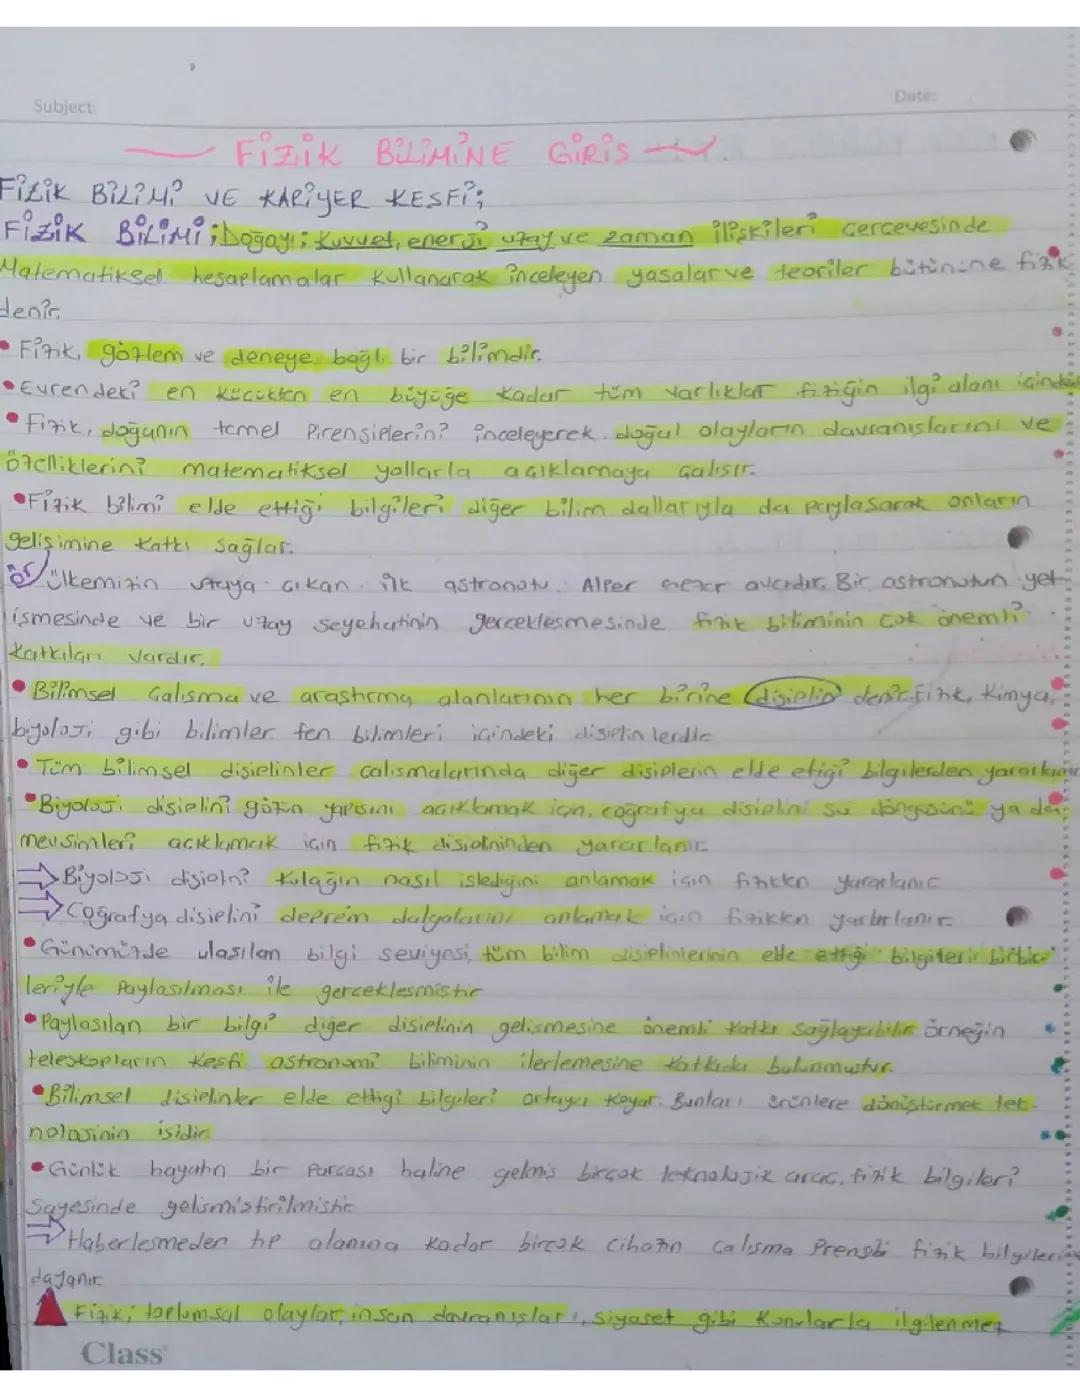 Subject:
Date:
FİZİK BİLİMİNE GİRİS
FİZİK BİLİMİ VE KARİYER KESFİ;
FİZİK BİLİMİ; Doğayı; kuvvet, enerji uzay ve zaman ilişkileri cercevesinde
Matematiksel hesaplamalar kullanarak inceleyen yasalar ve teoriler bütününe fizik
denir.
• Fizik, gözlem ve deneye bağlı bir bilimdir.
• Evrendeki en kücükten en büyüğe kadar tüm varlıklar fiziğin ilgi alanı içindedir
• Fizik, doğanın temel Pirensiplerini inceleyerek, doğal olayların davranışlarını ve
özelliklerini matematiksel yollarla açıklamaya calısır.
• Fizik bilimi elde ettiği bilgileri diğer bilim dallarıyla da paylasarak onların
gelişimine katkı sağlar.
ör/ ülkemizin uzaya cıkan ilk astronotu Alper Gezer avcıdır. Bir astronotun yet-
ismesinde ve bir uzay seyehatinin gerceklesmesinde fizik biliminin cok önemli
katkıları vardır.
• Bilimsel Calısma ve arastırma alanlarının her birine disiplin denir. Fizik, kimya,
biyoloji gibi bilimler fen bilimleri icindeki disiplinlerdir
• Tüm bilimsel disiplinler calısmalarında diğer disiplerin elde etiği bilgilerden yararlanır
• Biyoloji disiplini gözün yapısını acıklamak için, coğrafya disiplini su döngüsünü ya da
mevsimleri acıklamak icin fizik disiplninden yararlanır
⇒ Biyoloji disiplni kulağın nasıl islediğini anlamak icin fizikten yararlanır
⇒ Coğrafya disiplini deprem dalgalarını anlamak icin fizikten yararlanır.
• Günümüzde ulasılan bilgi seviyesi, tüm bilim disiplinlerinin elde ettiği bilgileri birbir-
leriyle Paylasılması ile gerceklesmistir
• Paylasılan bir bilgi diğer disiplinin gelismesine önemli katkı sağlayabilir örneğin
teleskopların Kesfi astronomi biliminin ilerlemesine katkıda bulunmustur.
• Bilimsel disiplinler elde ettigi bilgileri ortaya koyar. Bunları ürünlere dönüstürmek tek-
nolojinin isidir
• Günlük hayatın bir parcası haline gelmis bircok teknolojik arac, fizik bilgileri
Sayesinde gelismistirilmistir
⇒ Haberlesmeden tıp alanına kadar bircok cihazın calısma Prensibi fizik bilgilerine
dayanır
Fizik; toplumsal olaylar, insan davranısları, siyaset gibi konularla ilgilenmez
Class